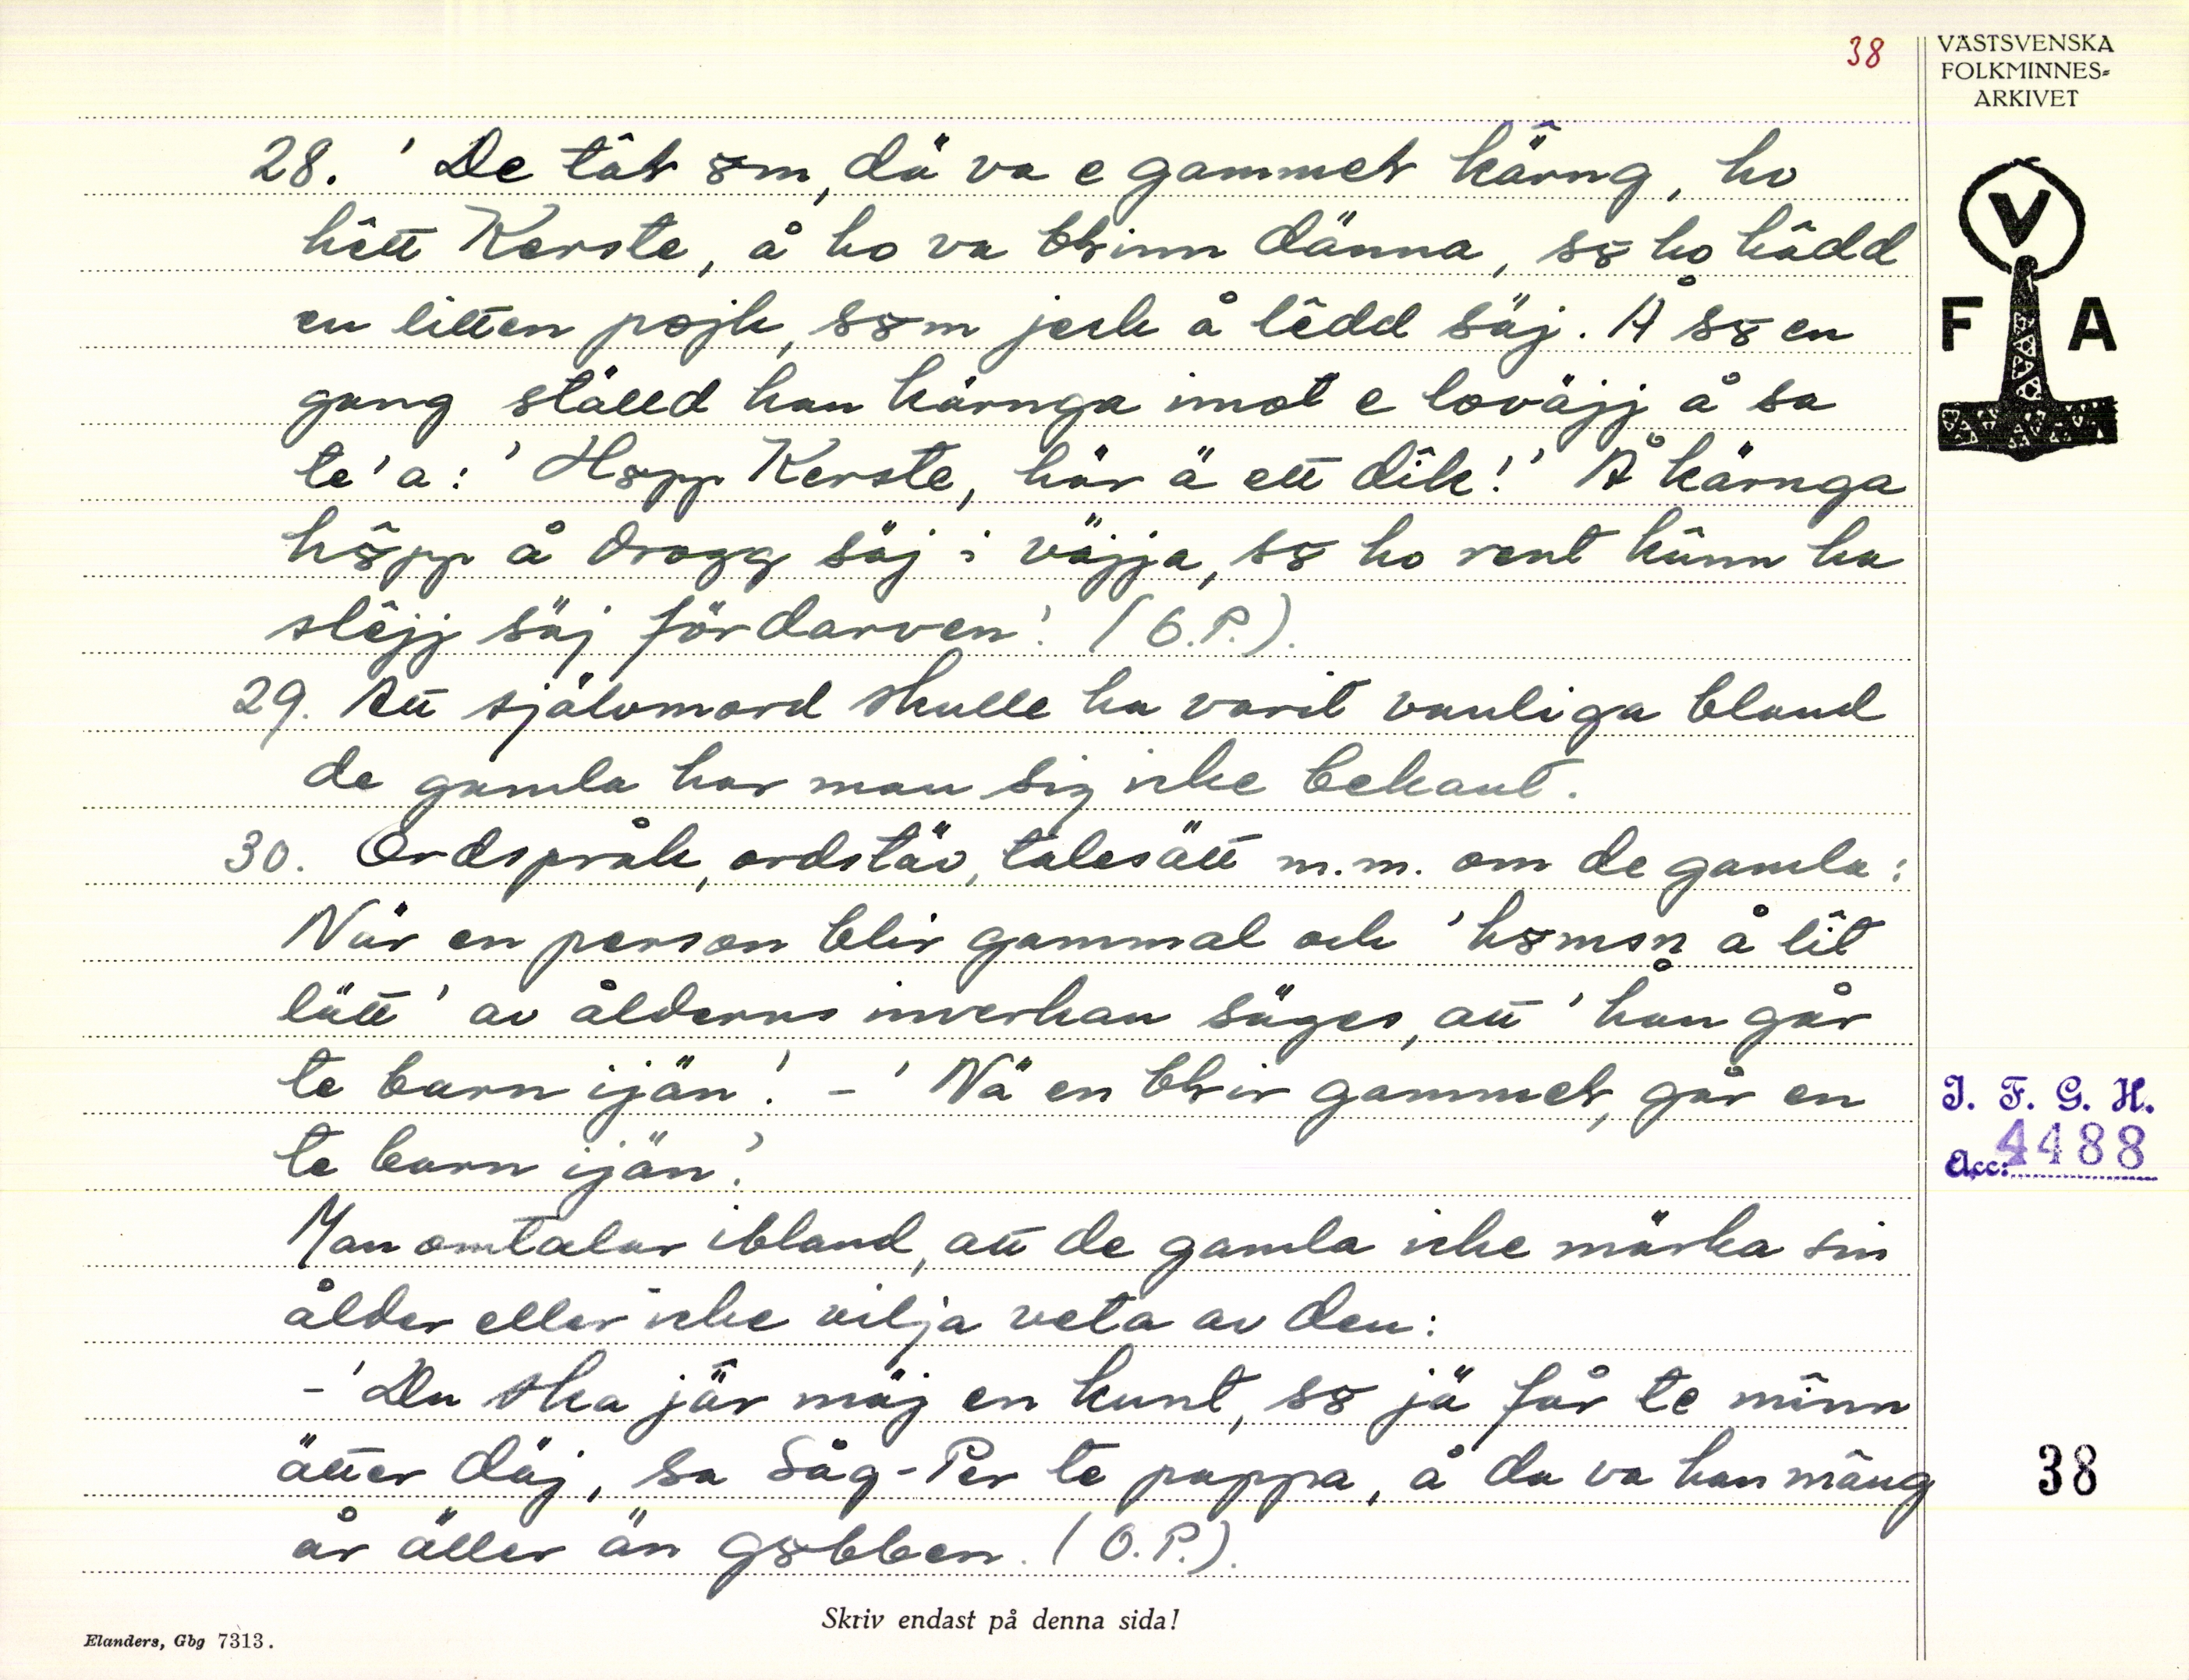 38
VÄSTSVENSKA
FOLKMINNES-
ARKIVET
V
F A
28. 'De tâƚ ꝏm, dä va e gammeƚ kä̂rng, ho
hêtt Kerste, å ho va bƚinn dänna, sꝏ ho hâdd
en litten pojk, sꝏm jeck å lêdd säj. Å sꝏ en
gang ställd han kärnga imot e loväjj å sa
te'a: 'Hꝏpp Kerste, här ä ett dîk!' Å kärnga
hꝏ̂pp å drogg säj i väjja, sꝏ ho rent kûnn ha
slêjj säj fördarven'. (O.P.).
29. Att självmord skulle ha varit vanliga bland
de gamla har man sig icke bekant.
30. Ordspråk, ordstäv, talesätt m.m. om de gamla:
När en person blir gammal och 'hꝏmsn å lît
lätt' av ålderns inverkan säges, att 'han går
te barn ijän'. - 'Nä en bƚir gammeƚ, går en
te barn ijän'.
Man omtalar ibland, att de gamla icke märka sin
ålder eller icke vilja veta av den:
- 'Du ska jä̂r mäj en kunt, sꝏ jä får te mînn
ätter däj, sa Såg-Per te pappa, å da va han mâng
år äller än gꝏbben. (O.P.).
I. F. G. H.
Acc: 4488
38
Skriv endast på denna sida!
Elanders, Gbg 7313.